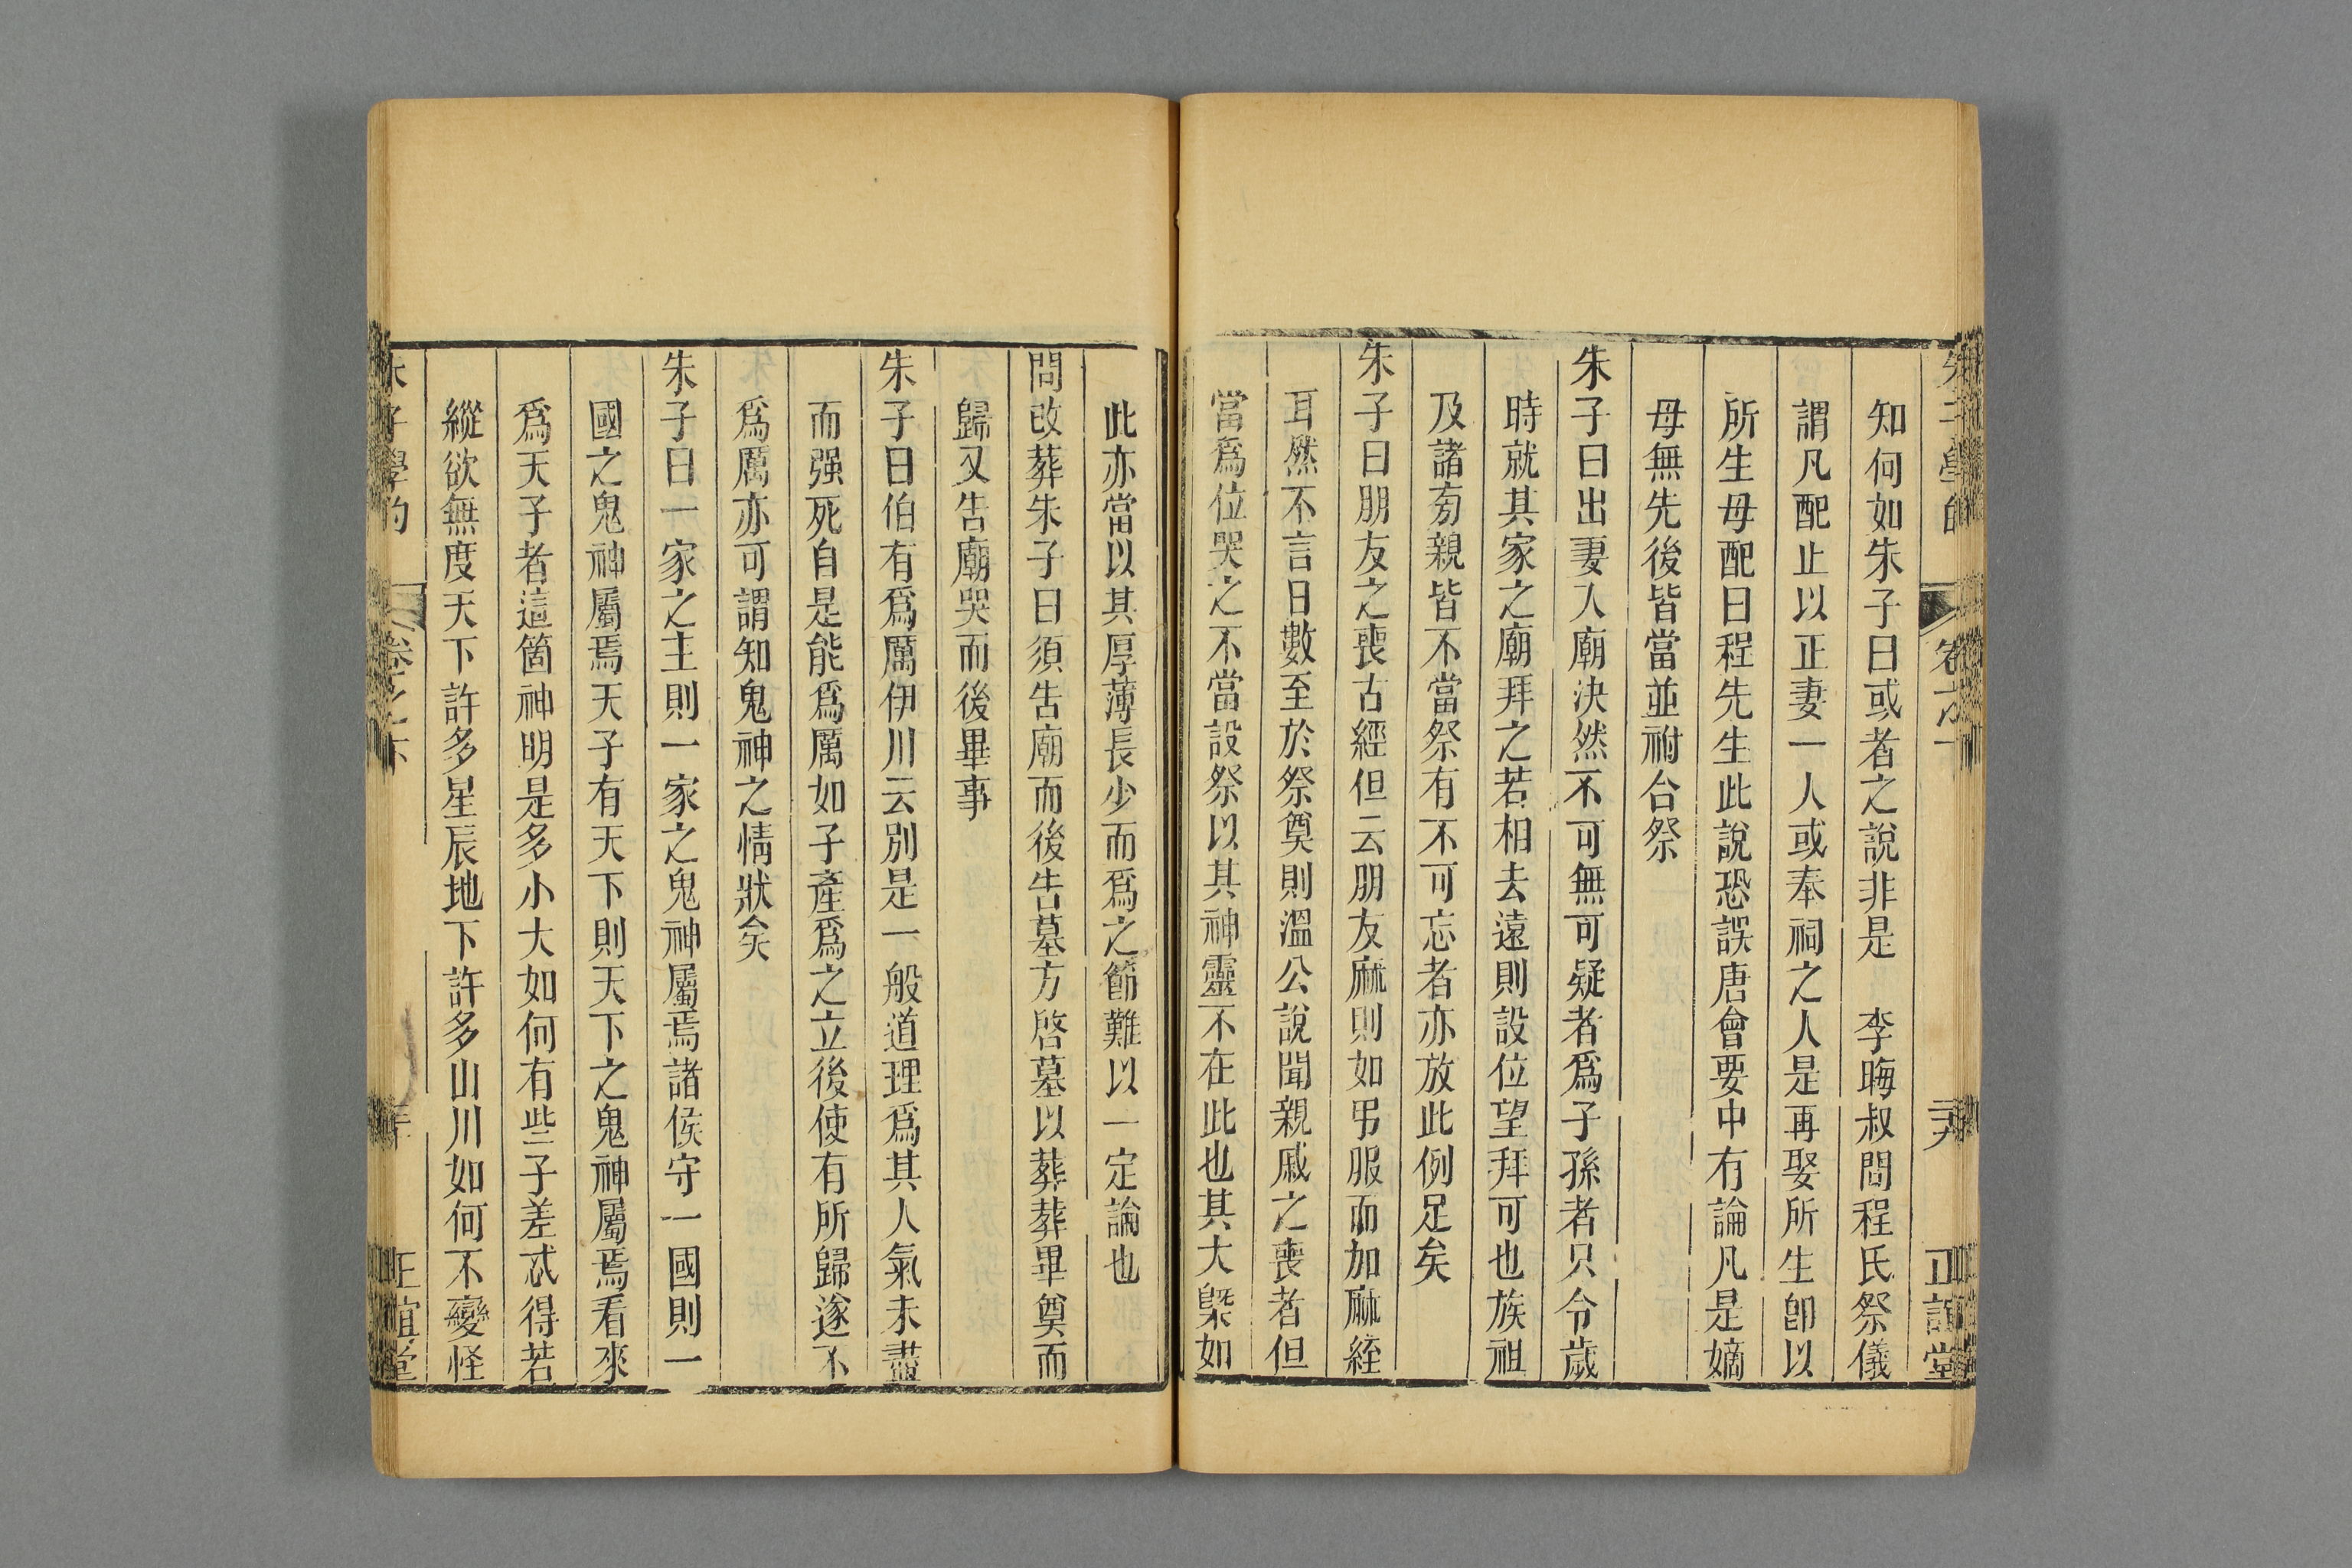 知何如朱子曰或者之說非是　李晦叔問程氏祭儀
謂凡配止以正妻一人或奉祠之人是再娶所生卽以
所生母配曰程先生此說恐誤唐會要中有論凡是嫡
母無先後皆當並祔合祭
朱子曰出妻入廟決然不可無可疑者爲子孫者只令歲
時就其家之廟拜之若相去遠則設位望拜可也族祖
及諸旁親皆不當祭有不可忘者亦放此例足矣
朱子曰朋友之喪古經但云朋友麻則如弔服而加麻絰
耳然不言日數至於祭奠則溫公說聞親戚之喪者但
當爲位哭之不當設祭以其神靈不在此也其大槩如
此亦當以其厚薄長少而爲之節難以一定論也
問改葬朱子曰須告廟而後告墓方啓墓以葬葬畢奠而
歸又告廟哭而後畢事
朱子曰伯有爲厲伊川云別是一般道理爲其人氣未盡
而强死自是能爲厲如子產爲之立後使有所歸遂不
爲厲亦可謂知鬼神之情狀矣
朱子曰一家之主則一家之鬼神屬焉諸侯守一國則一
國之鬼神屬焉天子有天下則天下之鬼神屬焉看來
爲天子者這箇神明是多少大如何有些子差忒得若
縱欲無度天下許多星辰地下許多山川如何不變怪
朱子學的
卷之下
正誼堂